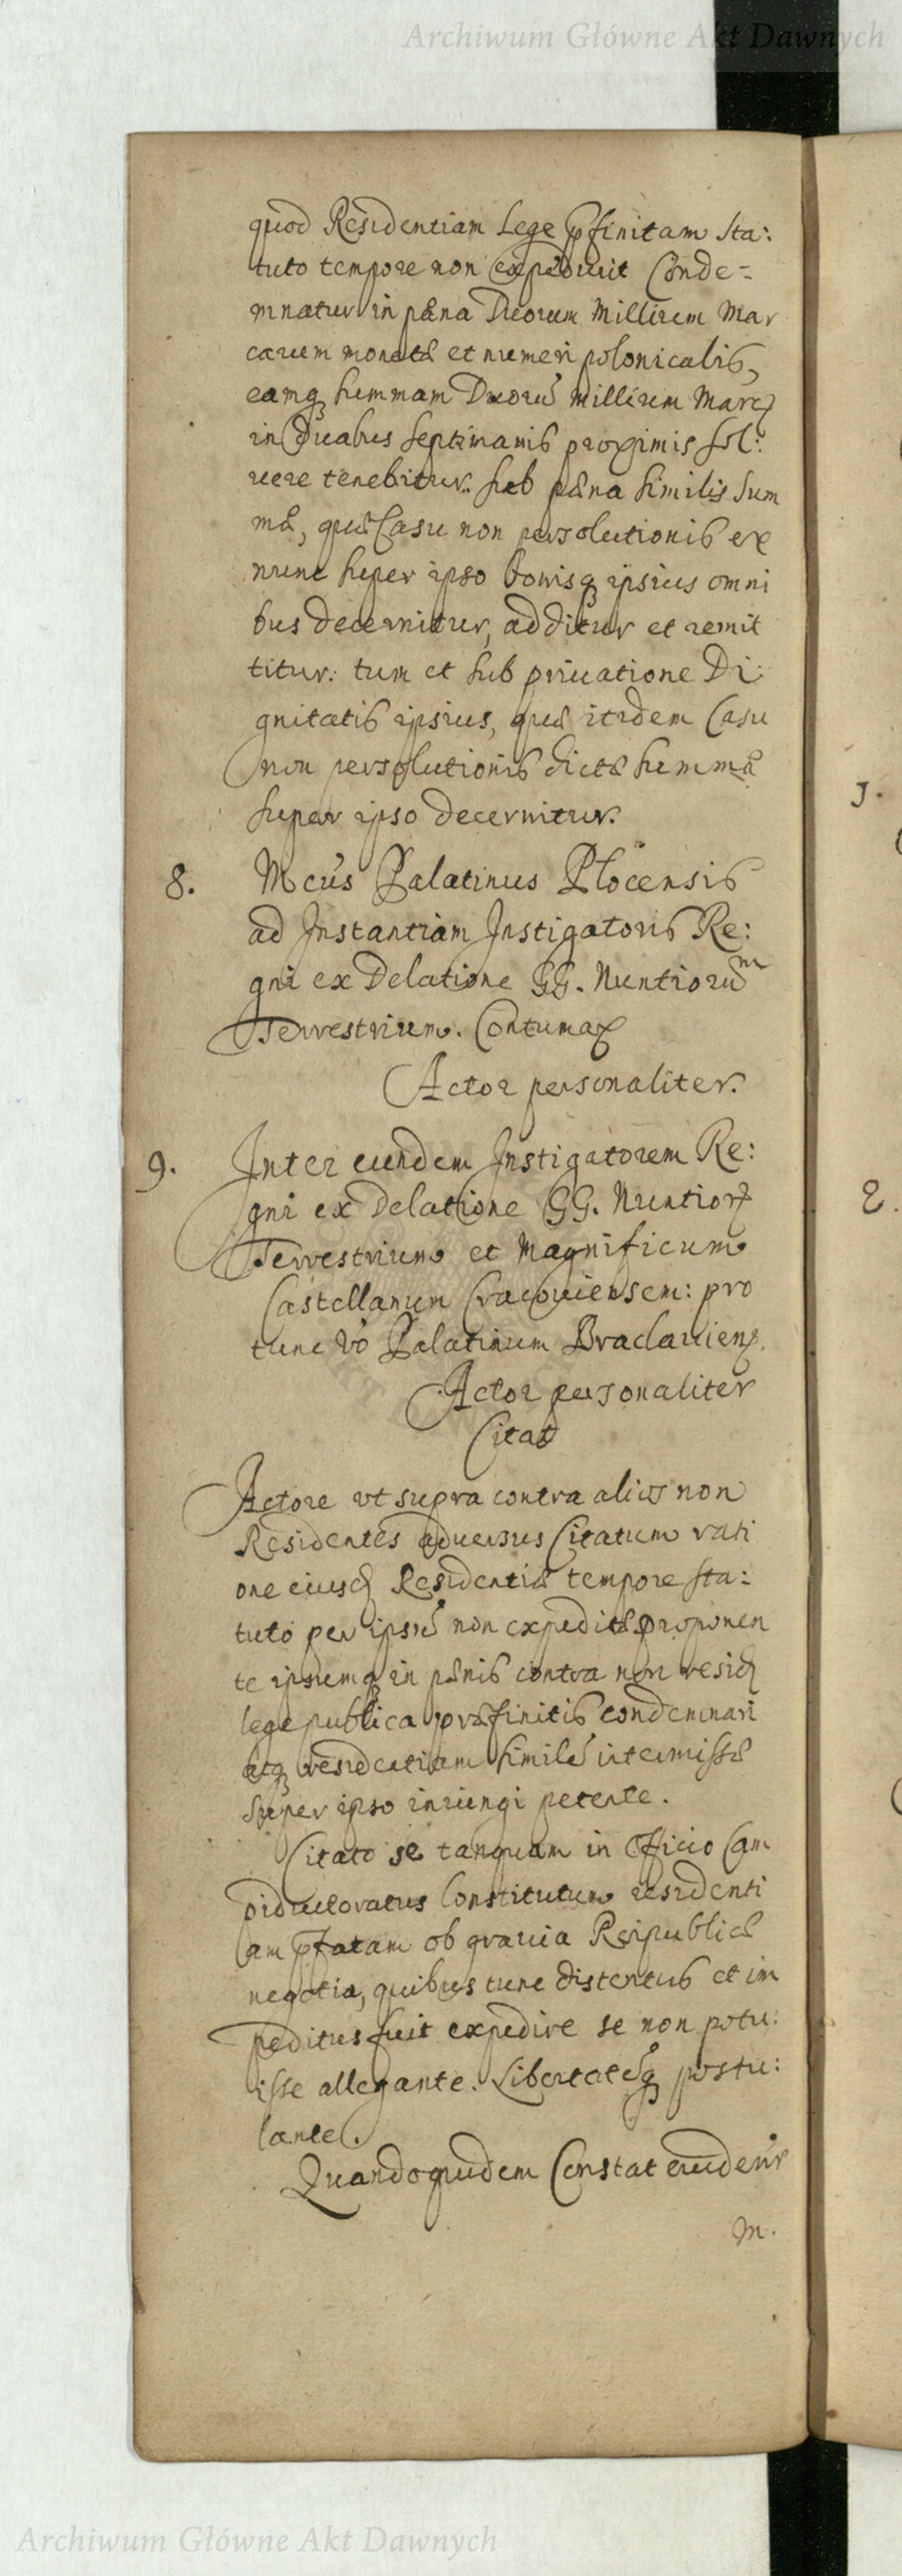 Archiwum Główne Akt Dawnych
quod Residentiam Lege p̱finitam sta:
tuto tempore non expediuit Conde=
mnatur in pæna Duorum Millium Mar
carum monetæ et numeri polonicalis,
eamq̨ summam Duorū Millium Marcȝ
in Duabus septimanis proximis sol:
uere tenebitur. sub pæna similis sum
mæ, quæ Casu non persolutionis ex
nunc super ipso bonisq̨ ipsius omni
bus decernitur, additur et remit
titur: tum et sub priuatione Di:
gnitatis ipsius, quæ itidem Casu
non persolutionis dictæ summæ
super ipso decernitur.
8. Mcūs Palatinus Plocensis
ad Instantiam Instigatoris Re:
gni ex Delatione GG. Nuntiorum
Terrestrium. Contumax
Actor personaliter.
9. Inter eundem Instigatorem Re:
gni ex Delatione GG. Nuntiorȝ
Terrestrium et Magnificum
Castellanum Cracouiensem: pro
tunc vō Palatinum Braclauienȝ.
Actor personaliter
Citat
Actore vt supra contra alios non
Residentes aduersus Citatum rati
one eiusd Residentiæ tempore sta:
tuto per ipsū non expeditæ proponen
te ipsumq̨ in pænis contra non resid
lege publica præfinitis condemnari
atq̨ residentiam similē intermissæ
super ipso iniungi petente.
Citato se tanquam in Officio Cam
piductoratus Constitutum residenti
am p̄fatam ob grauia Reipublicæ
negotia, quibus tunc distentus et im
peditus fuit expedire se non potu:
isse allegante. Libertatēq̨ postu:
lante.
Quandoquidem Constat euidenr
m.
1.
2.
Archiwum Główne Akt Dawnych